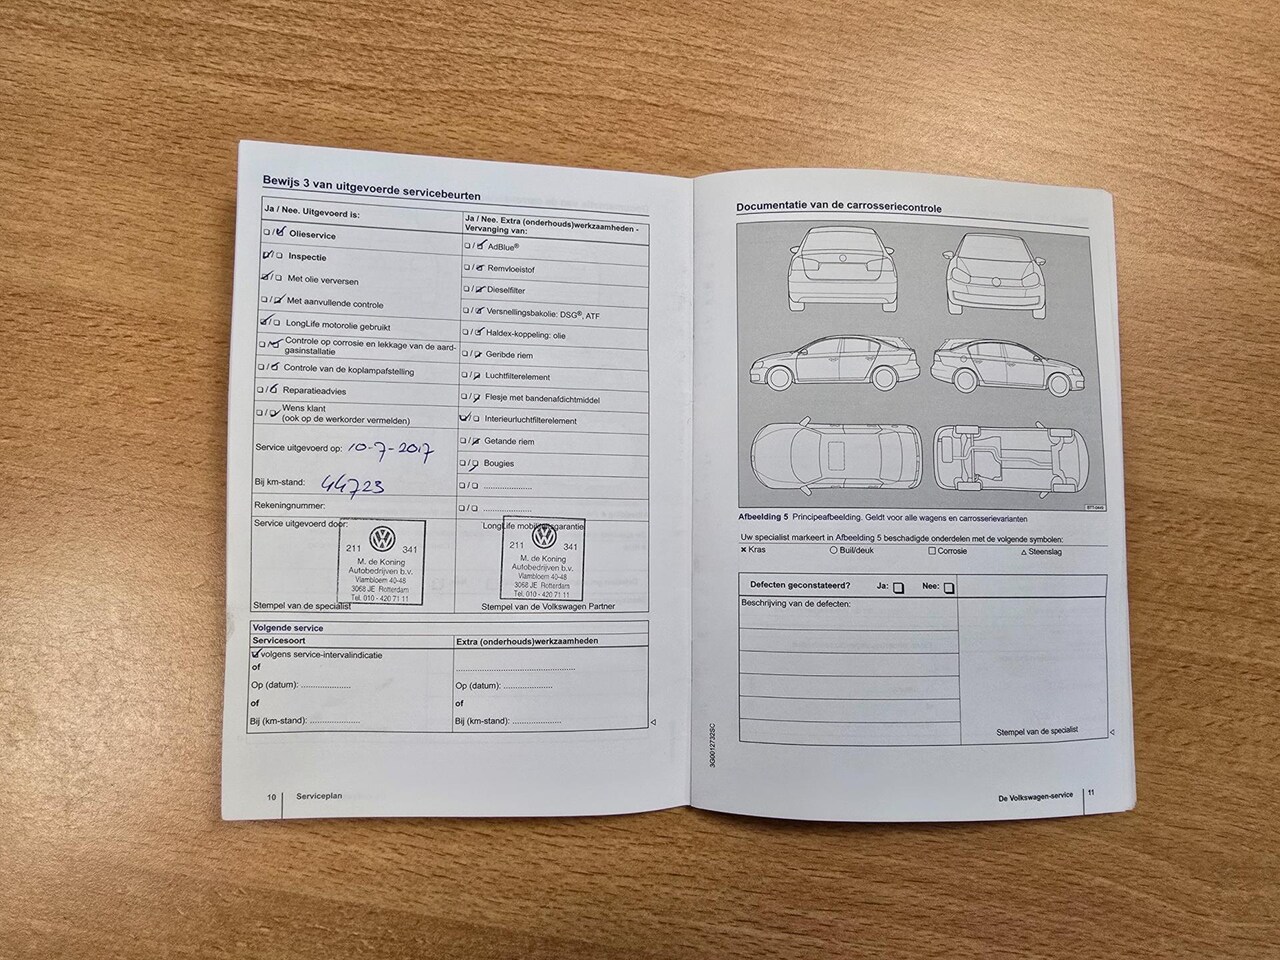 Bewijs 3 van uitgevoerde servicebeurten
Ja / Nee. Uitgevoerd is:
Olieservice
Inspectie
Met olie verversen
Met aanvullende controle
LongLife motorolie gebruikt
Controle op corrosie en lekkage van de aard-
gasinstallatie
Controle van de koplampafstelling
Reparatieadvies
Wens klant
(ook op de werkorder vermelden)
Service uitgevoerd op: 10-7-2017
Bij km-stand: 44723
Rekeningnummer:
Service uitgevoerd door:
211 341
M. de Koning
Autobedrijven b.v.
Vlambloem 40-48
3068 JE Rotterdam
Tel. 010 - 420 71 11
Stempel van de specialist
Ja / Nee. Extra (onderhouds)werkzaamheden -
Vervanging van:
AdBlue®
Remvloeistof
Dieselfilter
Versnellingsbakolie: DSG®, ATF
Haldex-koppeling: olie
Geribde riem
Luchtfilterelement
Flesje met bandenafdichtmiddel
Interieurluchtfilterelement
Getande riem
Bougies
LongLife mobiliteitsgarantie
211 341
M. de Koning
Autobedrijven b.v.
Vlambloem 40-48
3068 JE Rotterdam
Tel. 010 - 420 71 11
Stempel van de Volkswagen Partner
Volgende service
Servicesoort
volgens service-intervalindicatie
of
Op (datum): ....................
of
Bij (km-stand): ....................
Extra (onderhouds)werkzaamheden
Op (datum): ....................
Bij (km-stand): ....................
10 Serviceplan
Documentatie van de carrosseriecontrole
Afbeelding 5 Principeafbeelding. Geldt voor alle wagens en carrosserievarianten
Uw specialist markeert in Afbeelding 5 beschadigde onderdelen met de volgende symbolen:
Kras Buil/deuk Corrosie Steenslag
Defecten geconstateerd? Ja: Nee:
Beschrijving van de defecten:
Stempel van de specialist
3G0012732SC
De Volkswagen-service 11